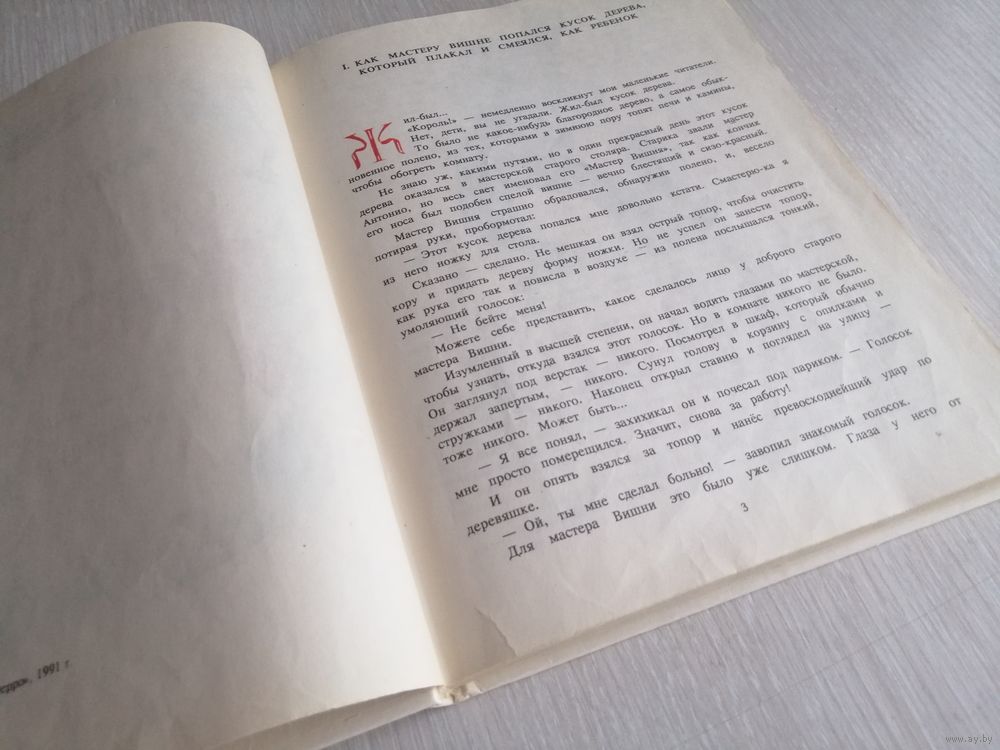 I. КАК МАСТЕРУ ВИШНЕ ПОПАЛСЯ КУСОК ДЕРЕВА,
КОТОРЫЙ ПЛАКАЛ И СМЕЯЛСЯ, КАК РЕБЕНОК
Жил-был...
«Король!» — немедленно воскликнут мои маленькие читатели.
Нет, дети, вы не угадали. Жил-был кусок дерева.
То было не какое-нибудь благородное дерево, а самое обык-
новенное полено, из тех, которыми в зимнюю пору топят печи и камины,
чтобы обогреть комнату.
Не знаю уж, какими путями, но в один прекрасный день этот кусок
дерева оказался в мастерской старого столяра. Старика звали мастер
Антонио, но весь свет именовал его «Мастер Вишня», так как кончик
его носа был подобен спелой вишне — вечно блестящий и сизо-красный.
Мастер Вишня страшно обрадовался, обнаружив полено, и, весело
потирая руки, пробормотал:
— Этот кусок дерева попался мне довольно кстати. Смастерю-ка я
из него ножку для стола.
Сказано — сделано. Не мешкая он взял острый топор, чтобы очистить
кору и придать дереву форму ножки. Но не успел он занести топор,
как рука его так и повисла в воздухе — из полена послышался тонкий,
умоляющий голосок:
— Не бейте меня!
Можете себе представить, какое сделалось лицо у доброго старого
мастера Вишни.
Изумленный в высшей степени, он начал водить глазами по мастерской,
чтобы узнать, откуда взялся этот голосок. Но в комнате никого не было.
Он заглянул под верстак — никого. Посмотрел в шкаф, который обычно
держал запертым, — никого. Сунул голову в корзину с опилками и
стружками — никого. Наконец открыл ставню и поглядел на улицу —
тоже никого. Может быть...
— Я все понял, — захихикал он и почесал под париком. — Голосок
мне просто померещился. Значит, снова за работу!
И он опять взялся за топор и нанёс превосходнейший удар по
деревяшке.
— Ой, ты мне сделал больно! — завопил знакомый голосок.
Для мастера Вишни это было уже слишком. Глаза у него от
3
1991 г.
www.ay.by